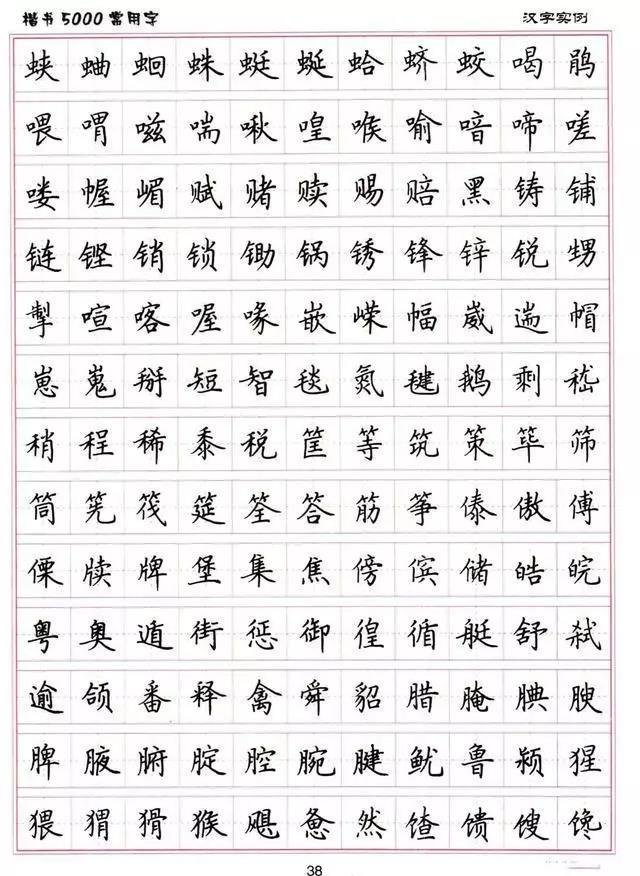 楷书5000常用字
汉字实例
蛱蛐蛔蛛蜓蜒蛤蛴蛟喝鹃
喂喟嗞喘啾喤喉喻喑啼嗟
喽幄嵋赋赌赎赐赔黑铸铺
链铿销锁锄锅锈锋锌锐甥
掣喧喀喔喙嵌嵘幅崴遄帽
崽嵬掰短智毯氮毽鹅剩嵇
稍程稀黍税筐等筑策筚筛
筒筅筏筵筌答筋筝傣傲傅
傈牍牌堡集焦傍傧储皓皖
粤奥遁街惩御徨循艇舒弑
逾颌番释禽舜貂腊腌腆腴
脾腋腑腚腔腕腱鱿鲁颍猩
猥猬猾猴飓惫然馇馈馊馋
38